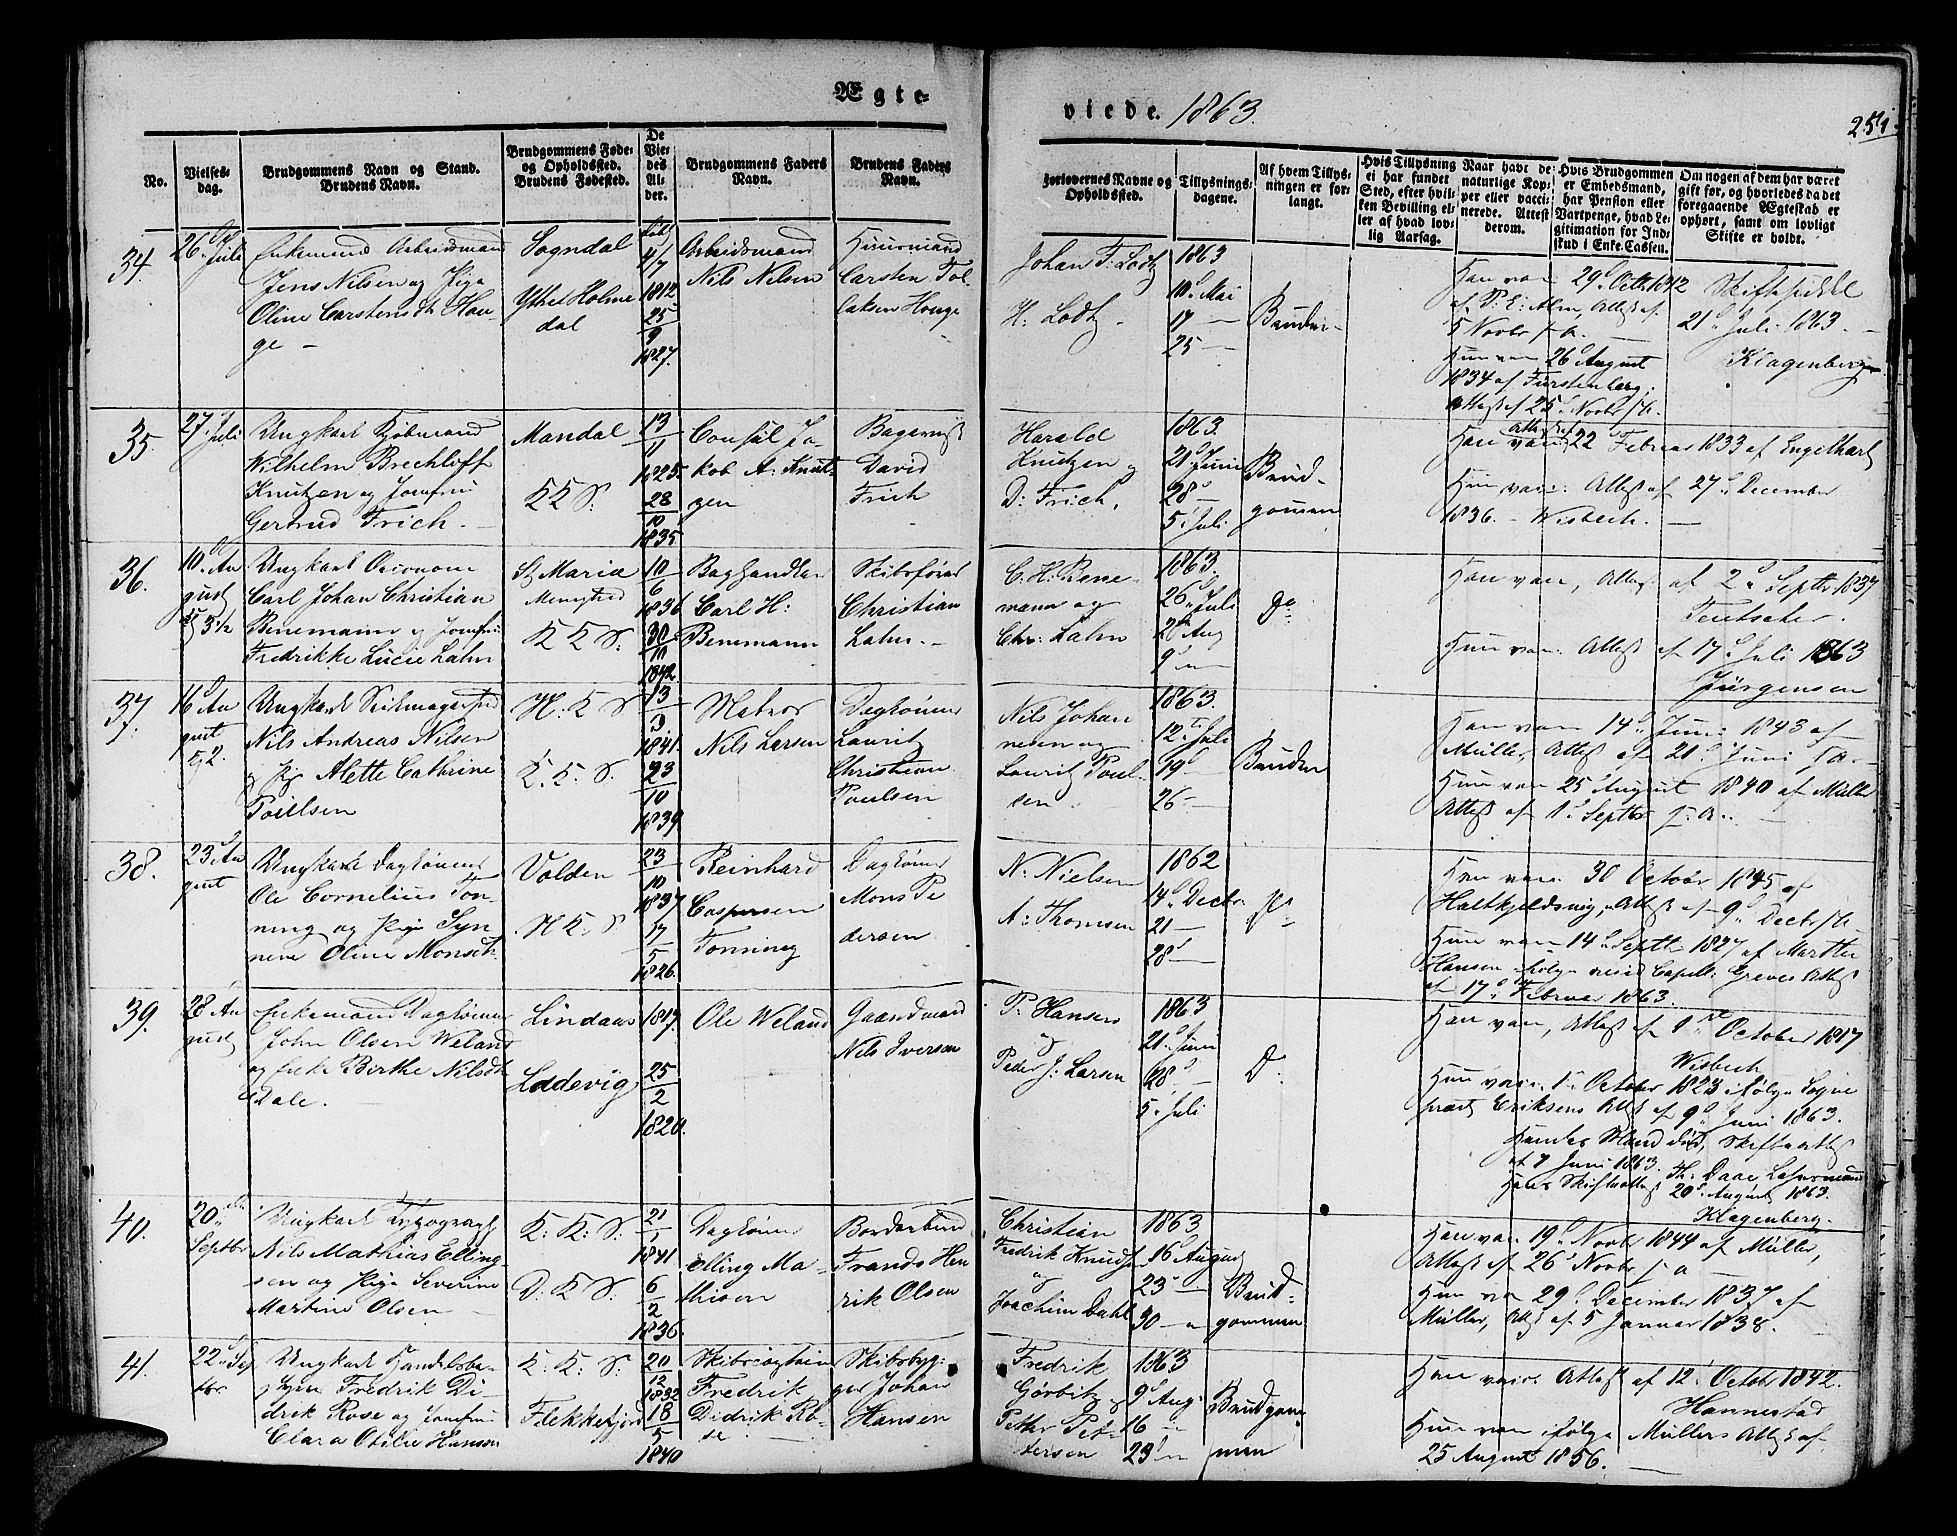 Ægte-
viede. 1863.
251.
No.
Vielses-
dag.
Brudgommens Navn og Stand.
Brudens Navn.
Brudgommens Føde-
og Opholdssted.
Brudens Fødested.
De
Vie-
des
Al-
der.
Brudgommens Faders
Navn.
Brudens Faders
Navn.
Forlovernes Navne og
Opholdssted.
Tillysnings-
dagene.
Af hvem Tillys-
ningen er for-
langt.
Hvis Tillysning
ei har fundet
Sted, efter hvil-
ken Bevilling el-
ler af hvad lov-
lig Aarsag.
Naar havt de
naturlige Kop-
per eller vacci-
nerede. Attest
derom.
Hvis Brudgommen
er Embedsmand,
har Pension eller
Vartpenge, hvad Le-
gitimation for Ind-
skud i Enke-Cassen.
Om nogen af dem har været
gift før, og hvorledes da det
foregaaende Ægteskab er
ophørt, samt om lovligt
Skifte er holdt.
34.
26 Juli
Enkemand Arbeidsmand
Jens Nilsen og Pige
Oline Carstensdt. Hou-
ge –
Sogndal
Ythet Holme
dal
4/7
1812
25
9
1827.
Arbeidsmand
Nils Nilsen
Huusmand
Carsten Tol-
laksen Houge
Johan F. Lodtz
H: Lodtz –
1863
10 Mai
17 —
25 —
Bruden
Han vac. 29 Octb. 1842
af P. E: Alm, Attest af
5 Novbr s. a. —
Hun vac. 26 August
1834 af Fürstenberg.
Attest af 25 Novbr s. A.
Skiftseddel
21 Juli 1863. —
Klagenberg
35.
27 Juli
Ungkarl Kjøbmand
Wilhelm Brechloff
Knutzen og Jomfru
Gertrud Frich. —
Mandal
K K S.
13
11
1825.
28
10
1835
Consül Ja-
kob A: Knut-
zen
Bagermst
David
Frich
Harald
Knutzen og
D: Frich,
1863.
21 Juni
28 —
5 Juli
Brud-
gommen
Han vac. Attest af 22 Februar 1833 af Engelhart
Hun vac: Attest af 27 December
1836. – Wisbech. —
36.
10 Au
gust
Kl 3½
Ungkarl Oeconom
Carl Johan Christian
Benemann og Jomfru
Fredrikke Lucie Lahn
St Maria
Menighed
K K S:
10
6
1836
30
11
1842.
Boghandler
Carl H:
Benemann
Skibsfører
Christian
Lahn. —
C. H. Bene-
mann og
Chr: Lahn
1863.
26 Juli
2 Aug
9 —
Do
Han vac, Attest af 2 Septbr 1837
Teutscher.
Hun vac: Attest af 17 Juli 1863
Jürgensen
37.
16 Au
gust
Kl 2.
Nils Andreas Nilsen
og Pige Alette Cathrine
Poülsen
N: K S
K. K: S.
13
3
1841.
23
10
1839
Matros
Nils Larsen
Dagløner
Lauritz
Christian
Poulsen
Nils Johan
nesen og
Lauritz Poul-
sen.
1863.
12 Juli
19 —
26 —
Bruden
Han vac 14 Juni 1843 af
Müller, Attest af 21 Juni s. A. —
Hun vac 25 August 1840 af Müller
Attest af 1 Septbr s. A. —
38.
23 Au
gust
Ungkarl Dagløner
Ole Cornelius Ton-
ning og Pige Syn-
neve Oline Monsdt.
Volden
N K. S
23
10
1837
17
5
1826.
Reinhard
Caspersen
Tonning
Dagløner
Mons Pe
dersen
N. Nielsen
A: Thomsen
1862
14 Decbr.
21 —
28 —
Do
Han vac. 30 October 1845 af
Holtkjeldsvig, Attest af 9 Decbr s. A.
Hun vac 14 Septbr 1827 af Marthe
Hansen ifølge resid Capell: Greves Attest
af 17 Februar 1863.
39.
28 Au
gust
Enkemand Dagløner
John Olsen Weland
og Enke Birthe Nilsdt.
Dale. —
Lindaas
Lddevig
1817.
25
2
1820.
Ole Weland
Gaardmand
Nils Iversen
P. Hansen
og
Peder J. Larsen
1863
21 Juni
28 —
5 Juli
D.
Han vac, Attest af 1 October 1817
Wisbech
Hun vac: 1 October 1823 ifølge Sogne
præst Eriksens Attest af 9 Juni 1863.
Hendes Mand død, Skifteattest
af 7 Juni 1863. Th: Daae Lensmand
Hans Skifteattest 20 August 1863.
Klagenberg.
40.
20
Septbr
Ungkarl Typograph
Nils Mathias Elling-
sen og Pige Severine
Martine Olsen —
K: K: S.
D. K S:
21
1
1841
6
2
1836.
Dagløner
Elling Ma-
thisen
Bordarbeid
Frands Hen
rik Olsen
Christian
Fredrik Knuds.
og
Joachim Dahl
1863
16 August
23 —
30 —
Brud-
gommen
Han vac. 19 Novbr 1844 af Müller,
Attest af 26 Novbr s. a —
Hun va 29 December 1837 af
Müller, Attest af 5 Januar 1838. —
41.
22 Sep
tbr.
Ungkarl Handelsbe-
Fredrik Di-
drik Rose og Jomfru
Clara Otilie Hansen
K: K: S:
Flekkefjord
20
12
1832
18
5
1840
Skibscaptein
Fredrik
Didrik Ro-
se
Skibsbyg-
ger Johan
Hansen
Fredrik
Gørbitz og
Peter Pet-
tersen
1863
9 Aug
16 —
23 —
Brudgom-
men
Han vac. Attest af 12 Octobr 1842.
Hannestad
Hun vac ifølge Müllers Attest af
25 August 1856. —